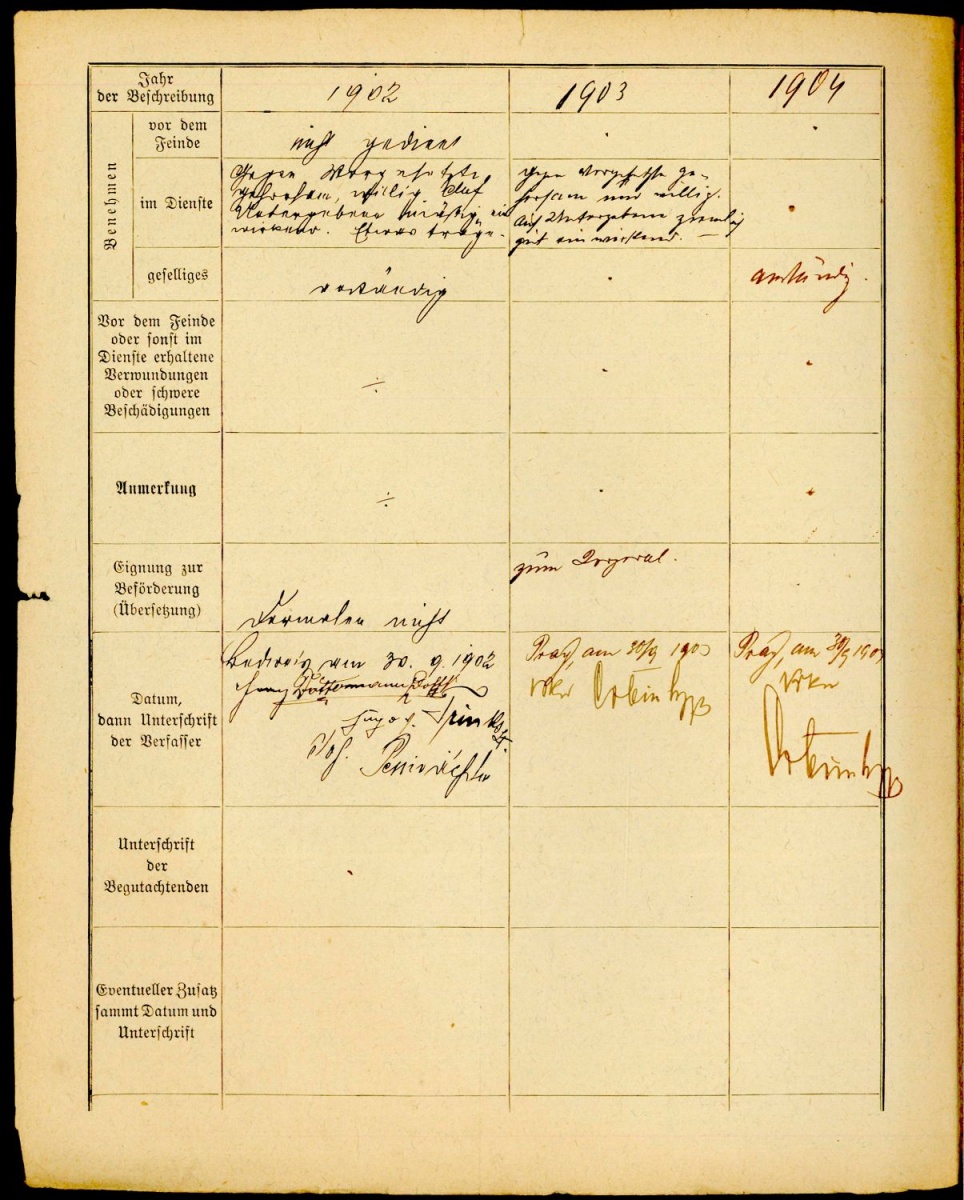 Jahr
der Beschreibung
1902
1903
1904
Benehmen
vor dem
Feinde
nicht gedient
im Dienste
Gegen Vorgesetzte
gehorsam, willig. Auf
Untergebene mäßig ein
wirkend. Etwas träge.
gegen Vorgesetzte ge-
horsam und willig.
auf Untergebene ziemlich
gut einwirkend. —
geselliges
anständig
anständig.
Vor dem Feinde
oder sonst im
Dienste erhaltene
Verwundungen
oder schwere
Beschädigungen
÷
Anmerkung
÷
Eignung zur
Beförderung
(Übersetzung)
Dermalen nicht
zum Corporal.
Datum,
dann Unterschrift
der Verfasser
am 30. 9. 1902
Prag, am 30/9 1903
Prag, am 30/9 1904
Unterschrift
der
Begutachtenden
Eventueller Zusatz
sammt Datum und
Unterschrift